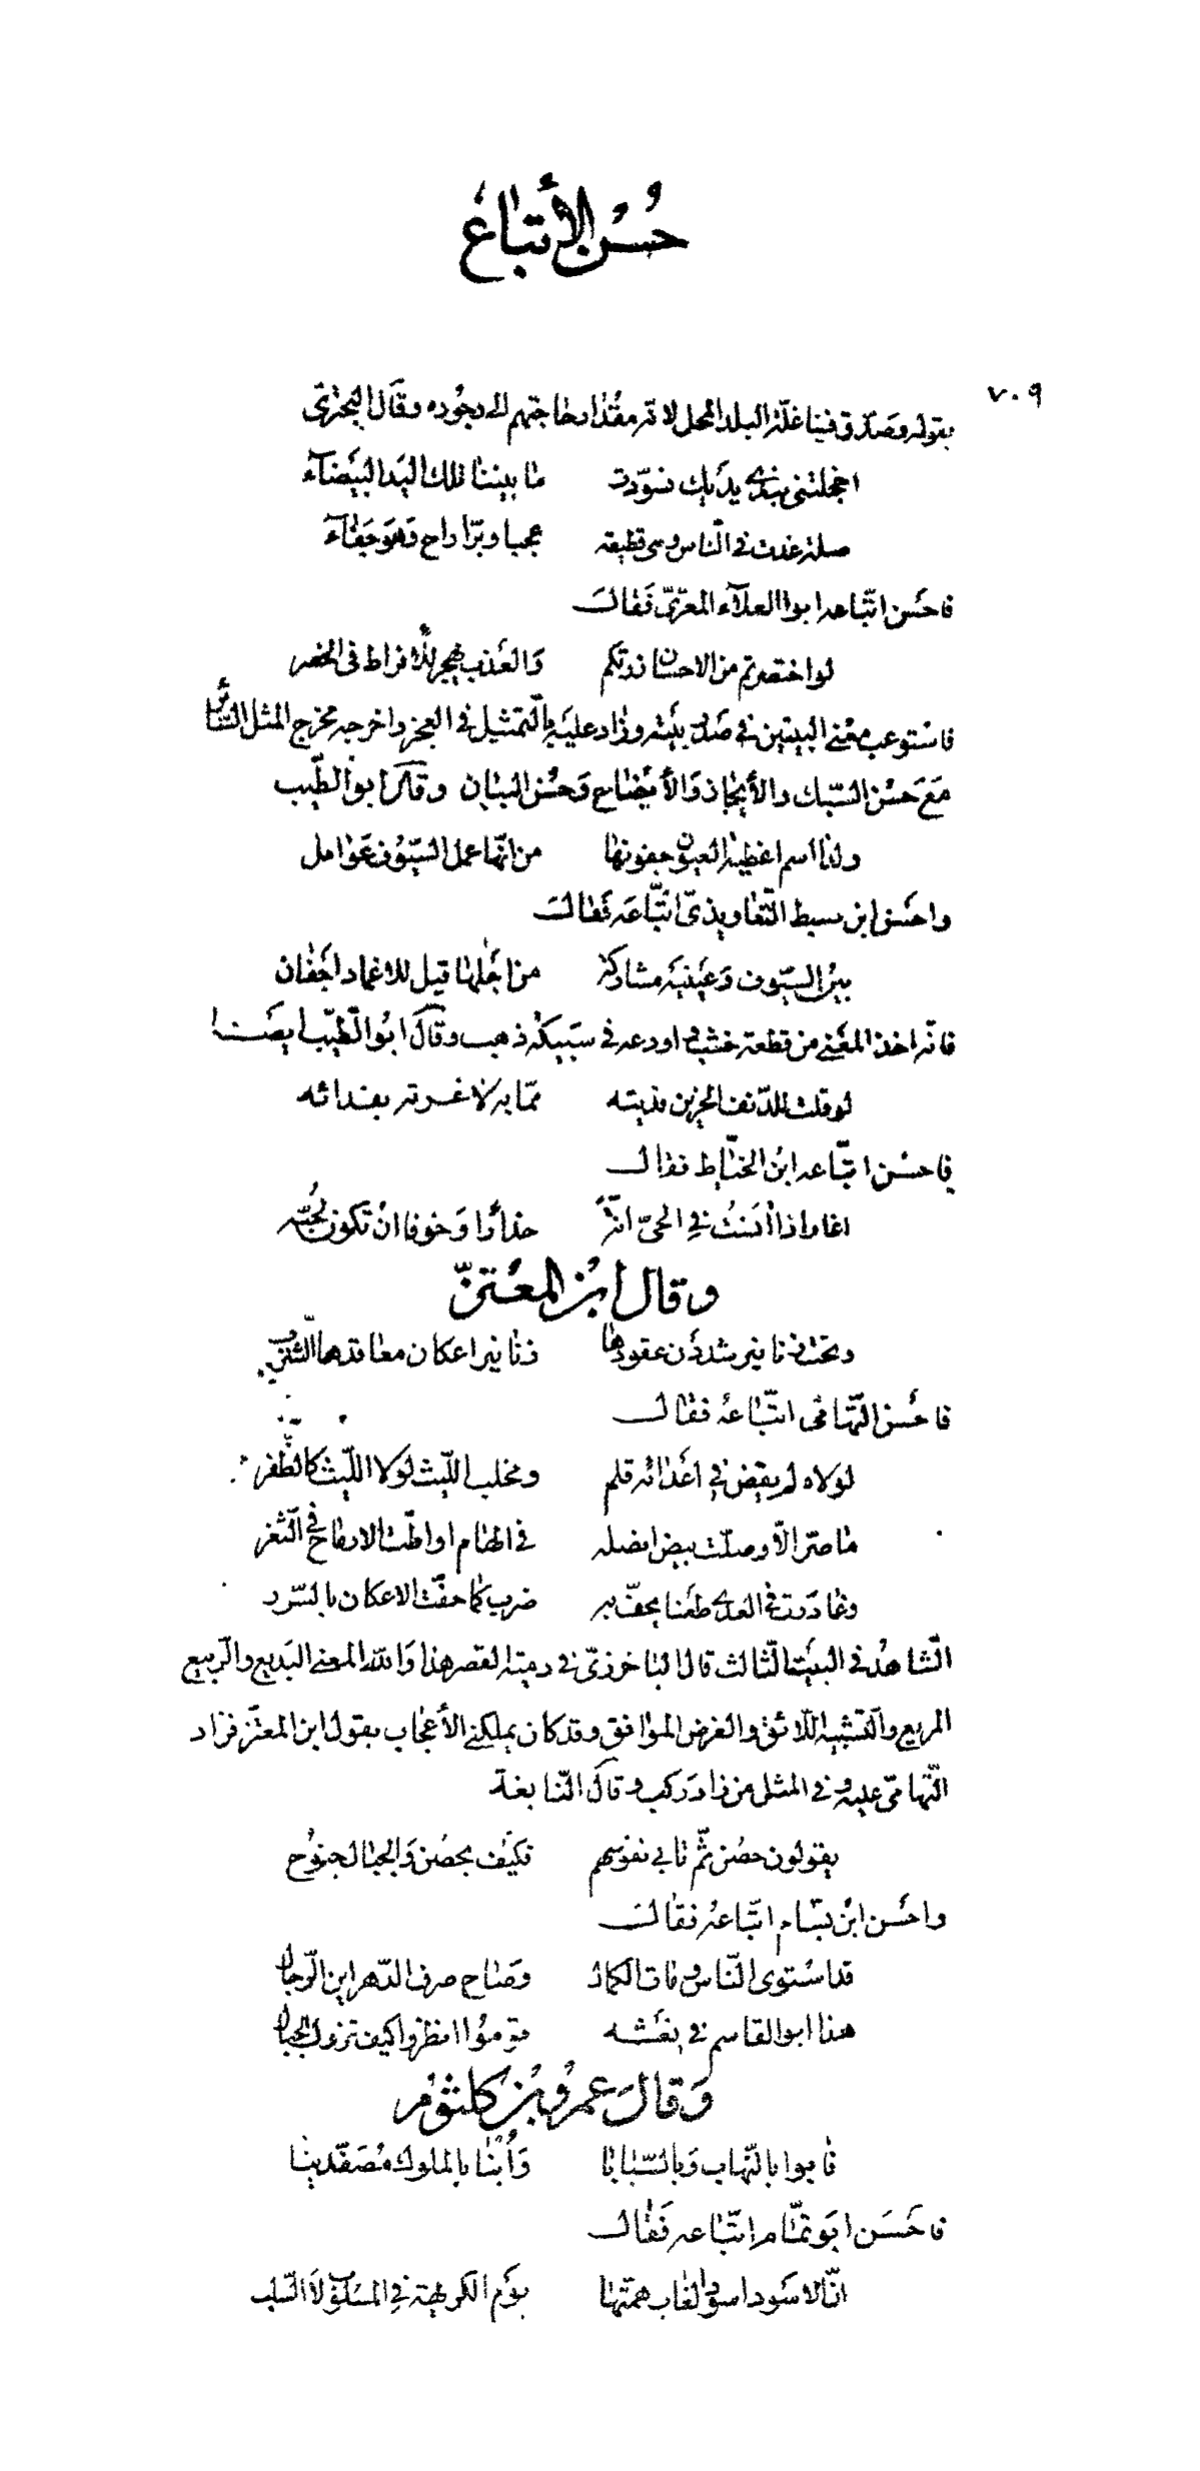 حُسْن الأتباع
٧٠٩
بقوله وصدّق فينا غلّة البلد المحل لانه مقدار حاجتهم الى وجوده وقال البحتريّ
اخجلتنى بندى يديك فسوّدت ما بيننا تلك اليد البيضآء
صلة غدت في الناس وهى قطيعة عجبا وبرّ راح وهو جفآء
فاحسن اتّباعه ابو العلآء المعرّيّ فقال
لو اختصرتم من الاحسان زرتكم والعذب يهجر للافراط في الخصر
فاستوعب معنى البيتين في صدر بيته وزاد عليه بالتمثيل في العجز واخرجه مخرج المثل السّائر
مع حسن السّبك والأيجاز والأيضاح وحسن البيان وقال ابو الطّيب
ولذا اسم اغطية العيون جفونها من انّها عمل السّيوف عوامل
واحسن ابن سبط التّعاويذيّ اتّباعه فقال
بين السّيوف وعينيه مشاركة من اجلها قيل للاغماد اجفان
فانّه اخذ المعنى من قطعة خشب اودعه في سبيكة ذهب وقال ابو الطّيّب ايضا
لو قلت للدّنف الحزين فديته ممّا به لاغرته بفدائه
فاحسن اتّباعه ابن الخيّاط فقال
اغار اذا آنست في الحيّ انّة حذارا وخوفا ان تكون لحبّه
وقال ابن المعتزّ
وتحت زنانير شددن عقودها زنانير اعكان معاقدها السّرر
فاحسن التّهامى اتّباعه فقال
لولاه لم يقض في اعدائه قلم ومخلب اللّيث لولا اللّيث كالظّفر
ما صرّ الّا وصلّت بيض انصله في الهام او اطّت الارماح في الثّغر
وغادرت في العدى طعنا يحفّ به ضرب كما حفّت الاعكان بالسّرر
الشّاهد في البيت الثّالث قال الباخرزيّ في دمية القصر هذا والله المعنى البديع والرّبيع
المريع والتّشبيه اللّائق والغرض الموافق وقد كان يملكني الأعجاب بقول ابن المعتز فزاد
التّهامىّ عليه وفي المثل من زاد ركب وقال النّابغة
يقولون حصن ثمّ تابى نفوسهم فكيف بحصن والجبال جنوح
واحسن ابن بسّام اتّباعه فقال
قد استوى النّاس ومات الكمال وصاح صرف الدّهر اين الرّجال
هذا ابو القاسم في نعشه قوموا انظروا كيف تزول الجبال
وقال عمرو بن كلثوم
فآبوا بالنّهاب وبالسّبايا وأبنا بالملوك مصفّدينا
فاحسن ابو تمّام اتّباعه فقال
انّ الاسود اسود الغاب همّتها يوم الكريهة في المسلوب لا السّلب